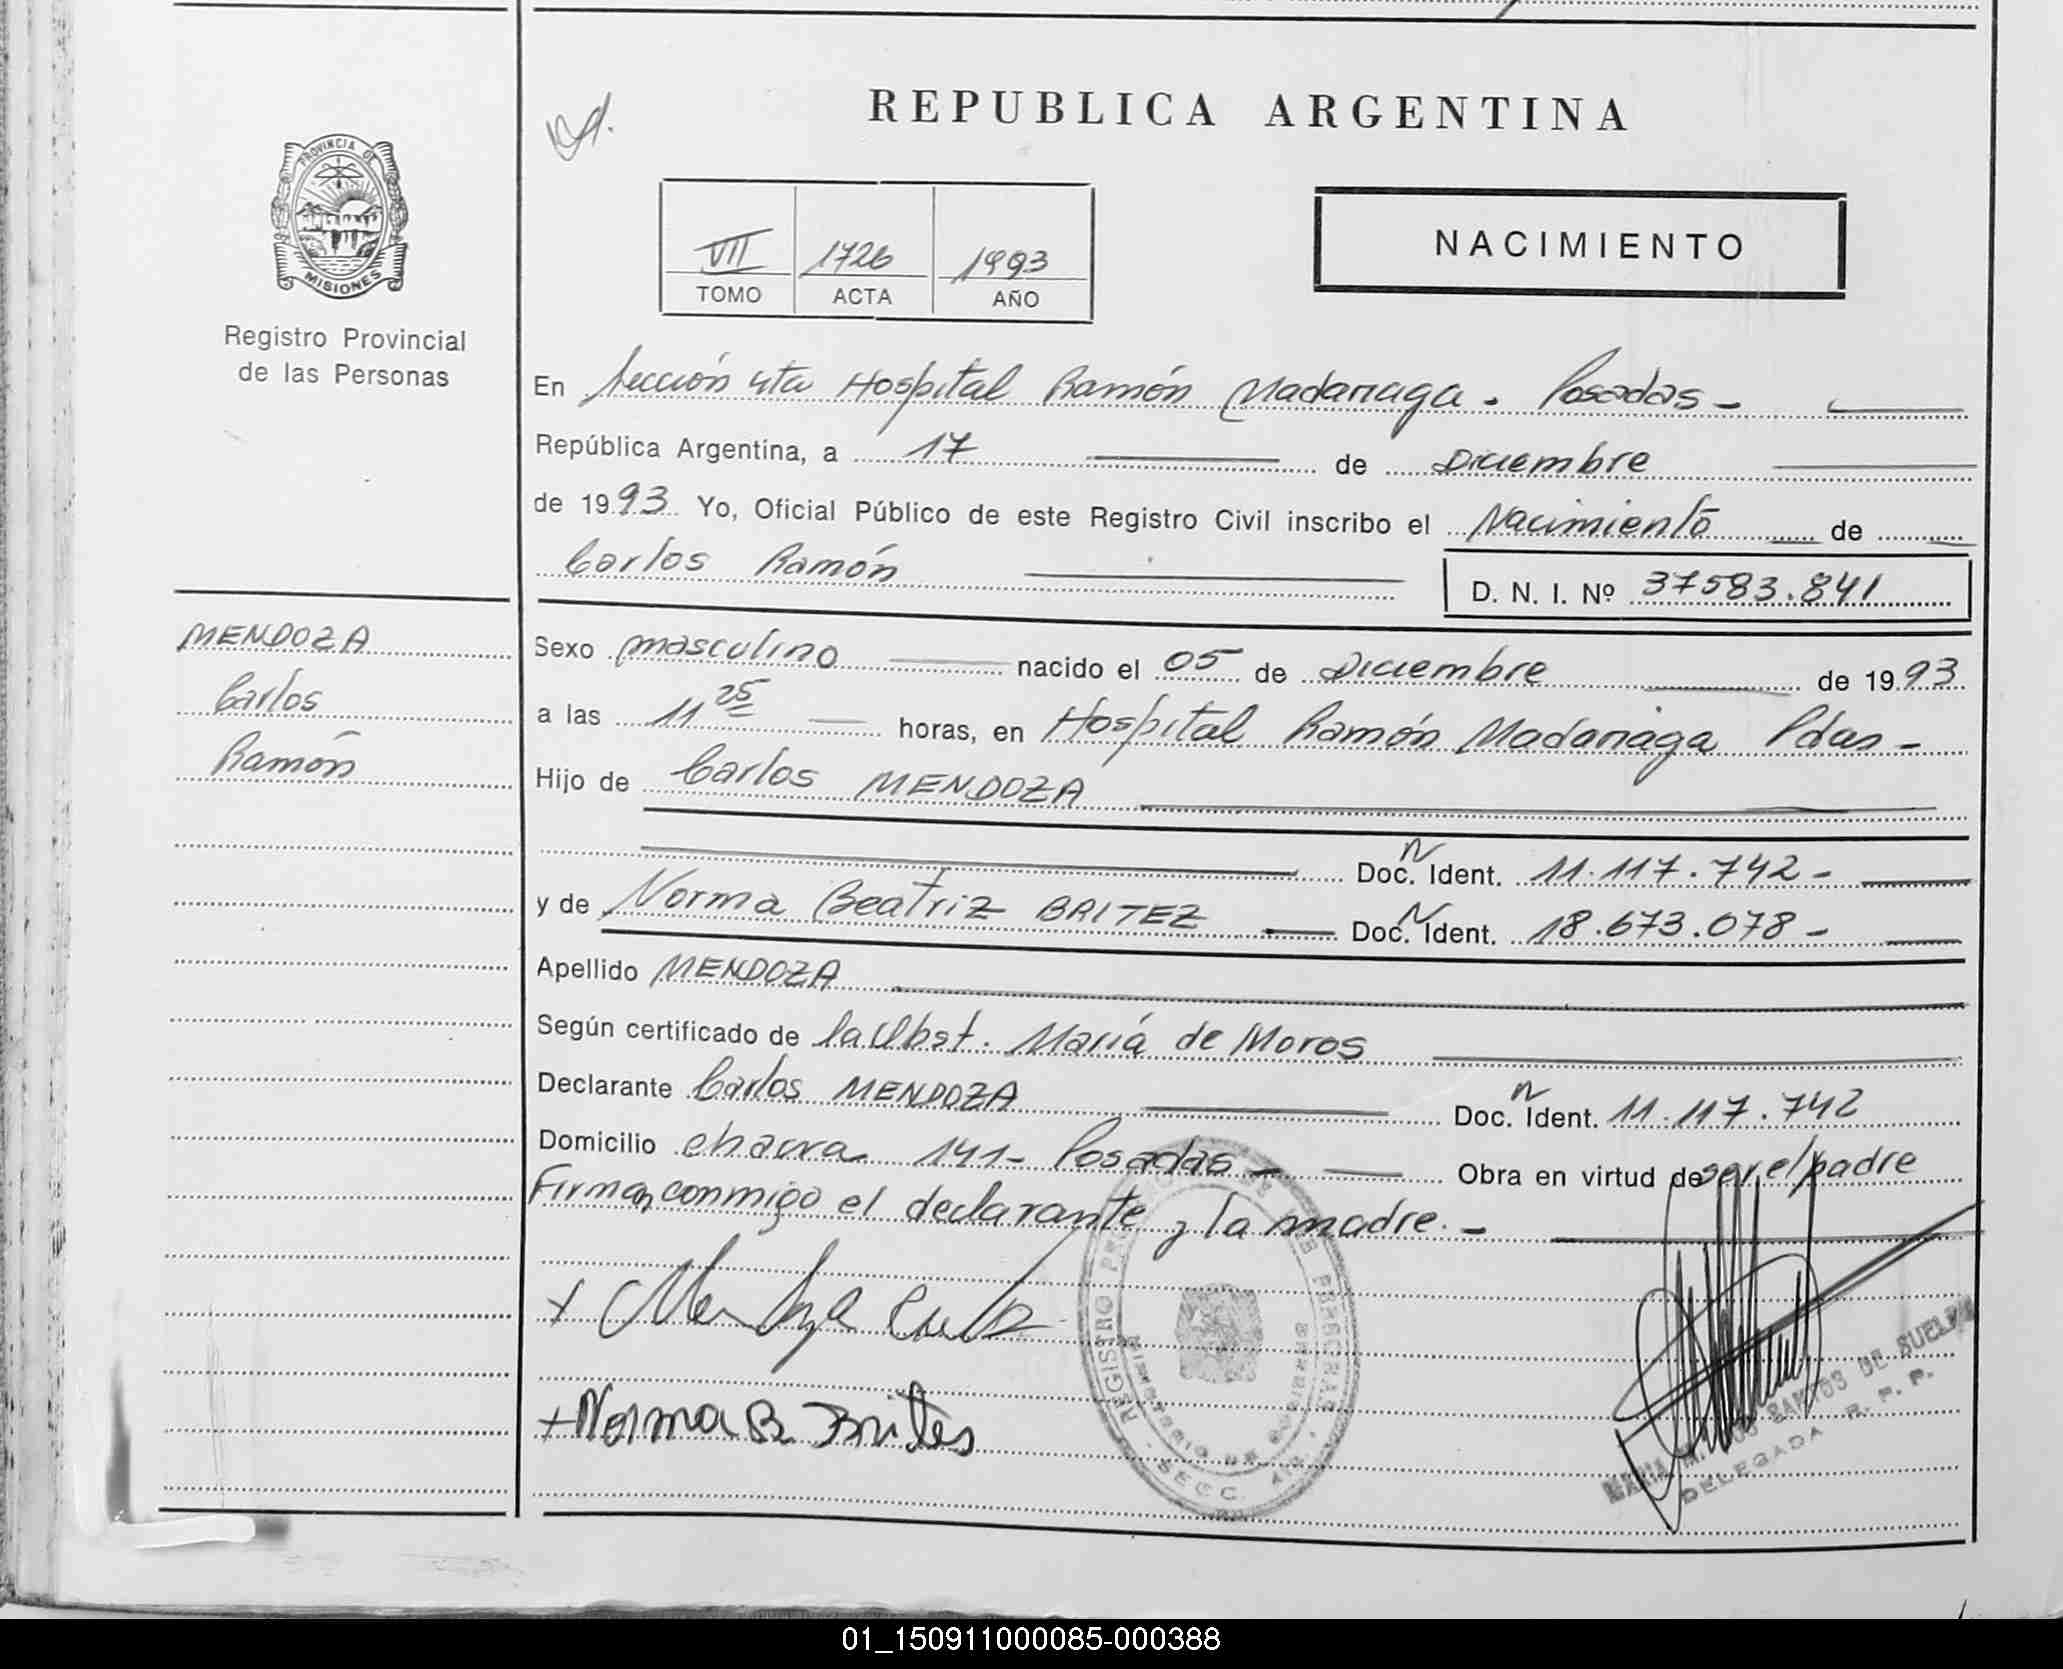 REPUBLICA ARGENTINA
PROVINCIA DE
MISIONES
Registro Provincial
de las Personas
VII 1726 1993
TOMO ACTA AÑO
NACIMIENTO
En Sección 4ta Hospital Ramón Madariaga - Posadas -
República Argentina, a 17 de Diciembre
de 1993 Yo, Oficial Público de este Registro Civil inscribo el Nacimiento de
Carlos Ramón
D. N. I. Nº 37583.841
MENDOZA
Carlos
Ramón
Sexo masculino nacido el 05 de Diciembre de 1993
a las 11 25 horas, en Hospital Ramón Madariaga Pdas -
Hijo de Carlos MENDOZA
Doc. N Ident. 11.117.742 -
y de Norma Beatriz BRITEZ Doc. N Ident. 18.673.078 -
Apellido MENDOZA
Según certificado de la Obst. María de Moros
Declarante Carlos MENDOZA Doc. N Ident. 11.117.742
Domicilio chacra 141 - Posadas - Obra en virtud de ser el padre
Firman conmigo el declarante y la madre. -
+ Mendoza Carlos
+ Norma B Brites
REGISTRO DE LAS PERSONAS
MINISTERIO DE
SECC. 4ta.
SANTOS DE
DELEGADA R. P. P.
01_150911000085-000388